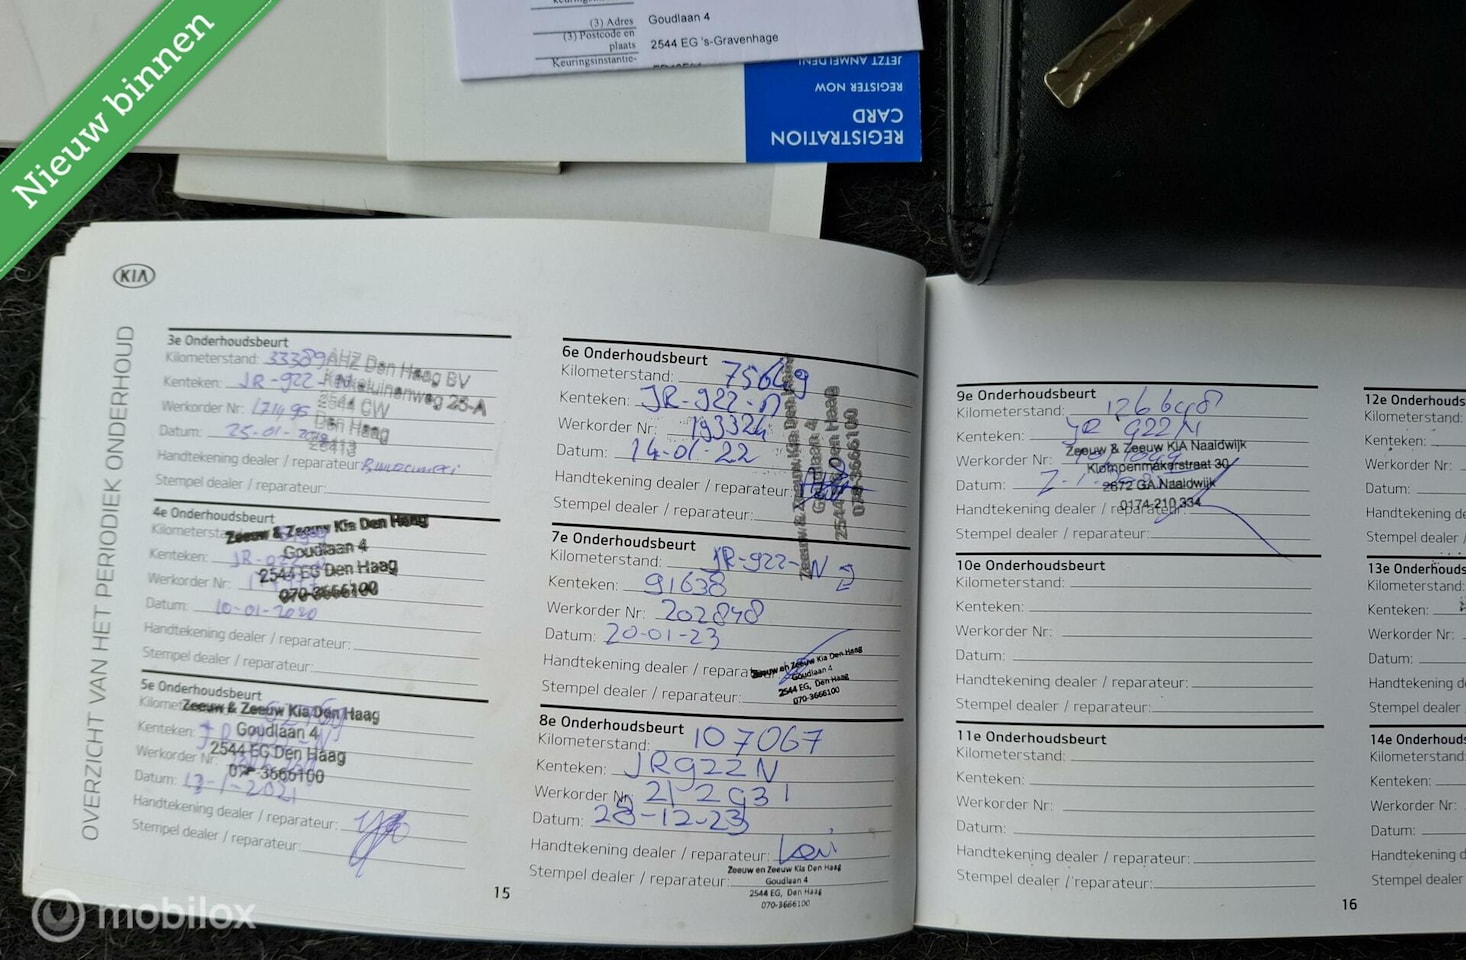 Nieuw binnen
(3) Adres Goudlaan 4
(3) Postcode en
plaats 2544 EG 's-Gravenhage
Keuringsinstantie-
JETZT ANMELDEN!
REGISTER NOW
REGISTRATION
CARD
KIA
OVERZICHT VAN HET PERIODIEK ONDERHOUD
3e Onderhoudsbeurt
Kilometerstand: 33389
Kenteken: JR-922-N
Werkorder Nr: 171495
Datum: 25-01-
Handtekening dealer / reparateur:
Stempel dealer / reparateur:
AHZ Den Haag BV
Kerketuinenweg 25-A
2544 CW
Den Haag
4e Onderhoudsbeurt
Kilometersta
Kenteken: JR-922
Werkorder Nr:
Datum: 10-01-2020
Handtekening dealer / reparateur:
Stempel dealer / reparateur:
Zeeuw & Zeeuw Kia Den Haag
Goudlaan 4
2544 EG Den Haag
070-3666100
5e Onderhoudsbeurt
Kilomet
Kenteken:
Werkorder Nr:
Datum: 13-1-2021
Handtekening dealer / reparateur:
Stempel dealer / reparateur:
Zeeuw & Zeeuw Kia Den Haag
Goudlaan 4
2544 EG Den Haag
070-3666100
6e Onderhoudsbeurt
Kilometerstand: 75649
Kenteken: JR-922-N
Werkorder Nr: 193324
Datum: 14-01-22
Handtekening dealer / reparateur:
Stempel dealer / reparateur:
Zeeuw & Zeeuw Kia Den Haag
Goudlaan 4
2544 EG Den Haag
070-3666100
7e Onderhoudsbeurt
Kilometerstand: JR-922-N
Kenteken: 91638
Werkorder Nr: 202848
Datum: 20-01-23
Handtekening dealer / repara
Stempel dealer / reparateur:
Zeeuw en Zeeuw Kia Den Haag
Goudlaan 4
2544 EG, Den Haag
070-3666100
8e Onderhoudsbeurt
Kilometerstand: 107067
Kenteken: JR922N
Werkorder Nr: 212931
Datum: 28-12-23
Handtekening dealer / reparateur:
Stempel dealer / reparateur:
Zeeuw en Zeeuw Kia Den Haag
Goudlaan 4
2544 EG, Den Haag
070-3666100
15
9e Onderhoudsbeurt
Kilometerstand:
Kenteken: 922N
Werkorder Nr:
Datum:
Handtekening dealer / reparateur:
Stempel dealer / reparateur:
Zeeuw & Zeeuw KIA Naaldwijk
Klompenmakerstraat 30
2672 GA Naaldwijk
0174-210 334
10e Onderhoudsbeurt
Kilometerstand:
Kenteken:
Werkorder Nr:
Datum:
Handtekening dealer / reparateur:
Stempel dealer / reparateur:
11e Onderhoudsbeurt
Kilometerstand:
Kenteken:
Werkorder Nr:
Datum:
Handtekening dealer / reparateur:
Stempel dealer / reparateur:
12e Onderhouds
Kilometerstand:
Kenteken:
Werkorder Nr:
Datum:
Handtekening d
Stempel dealer /
13e Onderhouds
Kilometerstand:
Kenteken:
Werkorder Nr:
Datum:
Handtekening d
Stempel dealer
14e Onderhouds
Kilometerstand
Kenteken:
Werkorder Nr:
Datum:
Handtekening d
Stempel dealer
16
mobilox